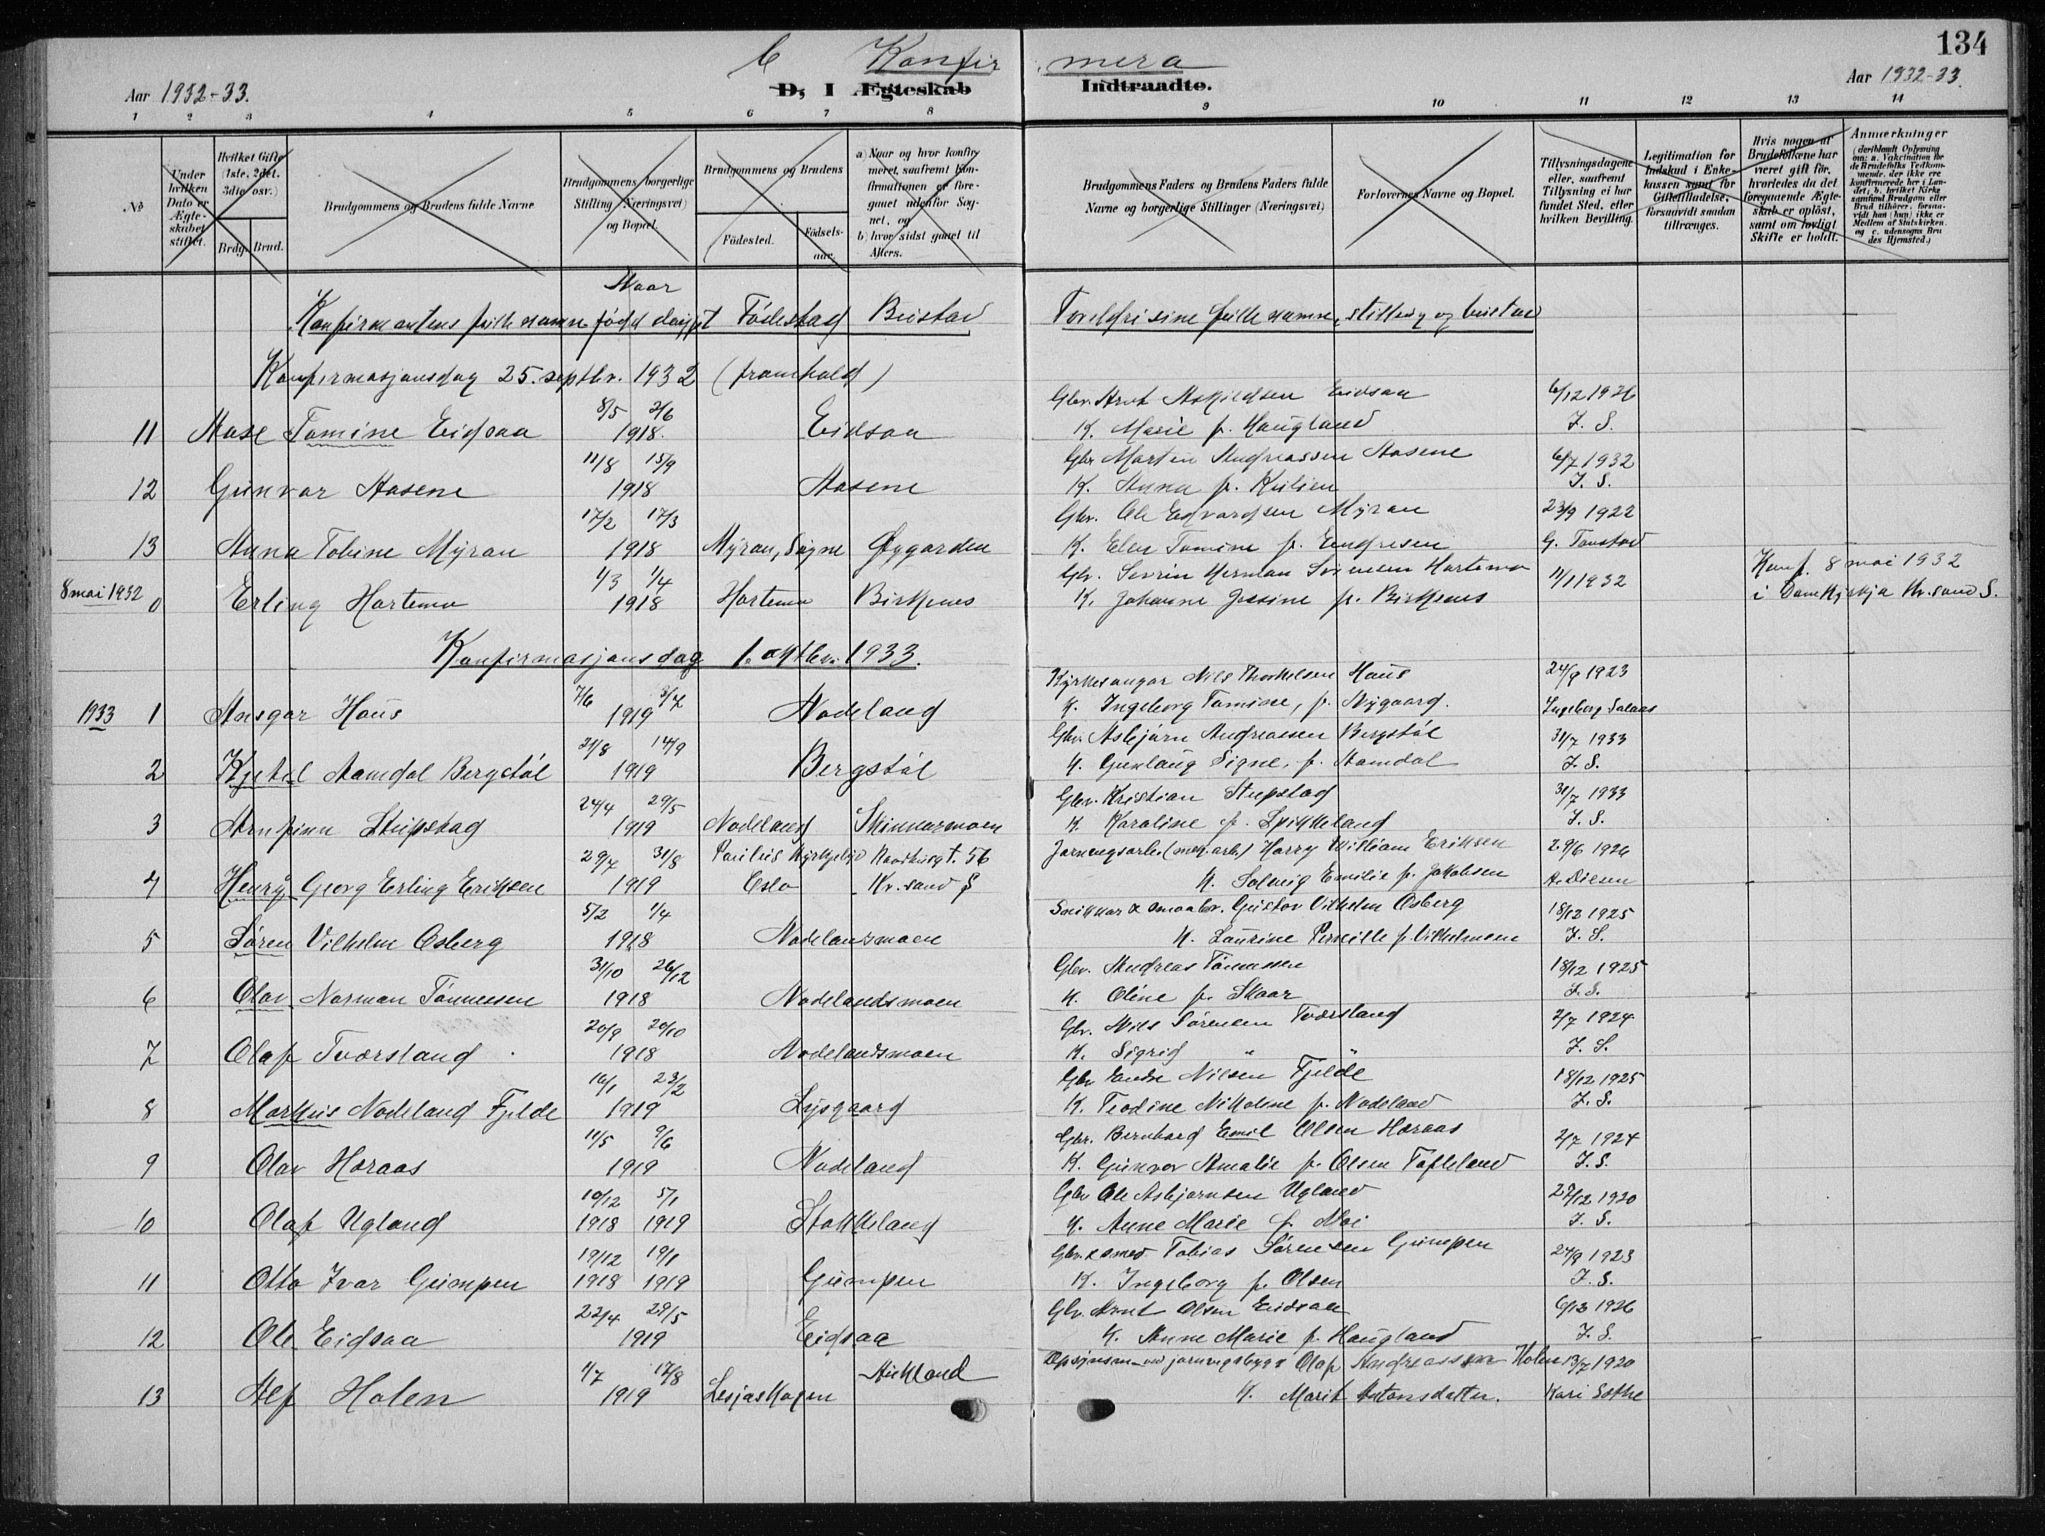 134
C Konfir mera
Aar 1932-33.
D, I Ægteskab Indtraadte.
Aar 1932-33.
1 2 3 4 5 6 7 8 9 10 11 12 13 14
№
Under hvilken Dato er Ægteskabet stiftet.
Hvilket Gifte (1ste, 2det, 3die osv.)
Brdg. Brud.
Brudgommens og Brudens fulde Navne
Brudgommens borgerlige Stilling (Næringsvei) og Bopæl.
Brudgommens og Brudens
Fødested. Fødselsaar.
a) Naar og hvor konfirmeret, saafremt Konfirmationen er foregaaet udenfor Sognet, og
b) hvor sidst gaaet til Alters.
Brudgommens Faders og Brudens Faders fulde Navne og borgerlige Stillinger (Næringsvei)
Forlovernes Navne og Bopæl.
Tillysningsdagene eller, saafremt Tillysning ei har fundet Sted, efter hvilken Bevilling.
Legitimation for Indskud i Enkekassen samt for Giftetilladelse, forsaavidt saadan tiltrænges.
Hvis nogen af Brudefolkene har været gift før, hvorledes da det foregaaende Ægteskab er opløst, samt om lovligt Skifte er holdt.
Anmerkninger (deriblandt Oplysning om: a. Vakcination for de Brudefolks Vedkommende, der ikke ere konfirmerede her i Landet; b. hvilket Kirkesamfund Brudgom eller Brud tilhører, forsaavidt han (hun) ikke er Medlem af Statskirken. og c. udensogns Brudes Hjemsted.)
Naar
Konfirmantens fulle namn født døypt Fødestad Bustad Foreldri sine fulle namn, stilling og bustad
Konfirmasjonsdag 25. septbr. 1932 (framhald)
11 Aase Tomine Eidsaa 8/5 2/6 1918. Eidsaa Gbr. Arnt Askildsen Eidsaa K. Marie f. Haugland 6/12 1926 J. S.
12 Gunvor Aasene 11/8 15/9 1918 Aasene Gbr Marten Andreassen Aasene K. Anna f. Kulien 6/7 1932 J. S.
13 Anna Tobine Myran 17/2 17/3 1918 Myran, Søgne Øygarden Gbr. Ole Edvardsen Myran K. Elen Tomine f. Endresen 23/9 1922 G. Tonstad
8 mai 1932 0 Erling Hortemo 1/3 1/4 1918 Hortemo Birkenes Gbr. Severin Herman Svensen Hortemo K. Johanne Jossine f. Birkenes 11/1 1932 Konf. 8 mai 1932 i Domkyrkja Kr.sand S.
Konfirmasjonsdag 1. oktbr. 1933.
1933 1 Ansgar Haus 7/6 3/7 1919 Nodeland Kyrkesongar Nils Thorkelsen Haus K. Ingeborg Tomine, f. Nygaard. 24/9 1923 Ingeborg Salaas
2 Kjetel Aamdal Bergstøl 21/8 14/9 1919 Bergstøl Gbr. Asbjørn Andreasen Bergstøl K. Gunlaug Signe, f. Aamdal 31/7 1933 J. S.
3 Arnfinn Stupstad 24/4 29/5 1919 Nodeland Skinnarmoen Gbr. Kristian Stupstad K. Karoline f. Spikkeland 31/7 1933 J. S.
4 Henry Georg Erling Eriksen 29/7 31/8 1919 Paulus Kyrkjelyd Oslo 56 Kr.sand S Jarnvegsarb. Harry William Eriksen K. Solveig Emilie f. Jakobsen 29/6 1926
5 Søren Vilhelm Osberg 5/2 1/4 1918 Nodelansmoen Snikkar & smaabr. Gustov Vilhelm Osberg K. Laurine Pernille f. Vilhelmsen 18/12 1925 J. S.
6 Olav Norman Tønnessen 31/10 26/12 1918 Nodelandsmoen Gbr. Andreas Tønnessen K. Oline f. Skaar 18/12 1925 J. S.
7 Olaf Tværsland 20/9 20/10 1918 Nodelandsmoen Gbr. Nils Sørensen Tværsland K. Sigrid " " 2/7 1924 J. S.
8 Markus Nodeland Fjelde 16/1 23/2 1919 Lysgaard Gbr Nilsen Fjelde K. Teodine Nikoline f. Nodeland 18/12 1925 J. S.
9 Olav Høraas 11/5 9/6 1919 Nodeland Gbr. Bernhard Emil Olsen Høraas K. Gunvor Amalie f. Olsen Tofteland 2/7 1924 J. S.
10 Olaf Ugland 10/12 5/1 1918 1919 Stokkeland Gbr Ole Asbjørnsen Ugland K. Anne Marie f. Moi 27/12 1920 J. S.
11 Otto Ivar Gumpen 19/12 19/1 1918 1919 Gumpen Gbr. & smed Tobias Sørensen Gumpen K. Ingeborg f. Olsen 24/9 1923 J. S.
12 Ole Eidsaa 22/4 29/5 1919 Eidsaa Gbr. Arnt Olsen Eidsaa K. Anne Marie f. Haugland 6/12 1926 J. S.
13 Alf Holen 1/7 17/8 1919 Lesjaskogen Aukland Opsynsm. ved jarnvegsbygg Olaf Andreassen Holen K. Marit Antonsdatter. 13/7 1920 Kari Sothe